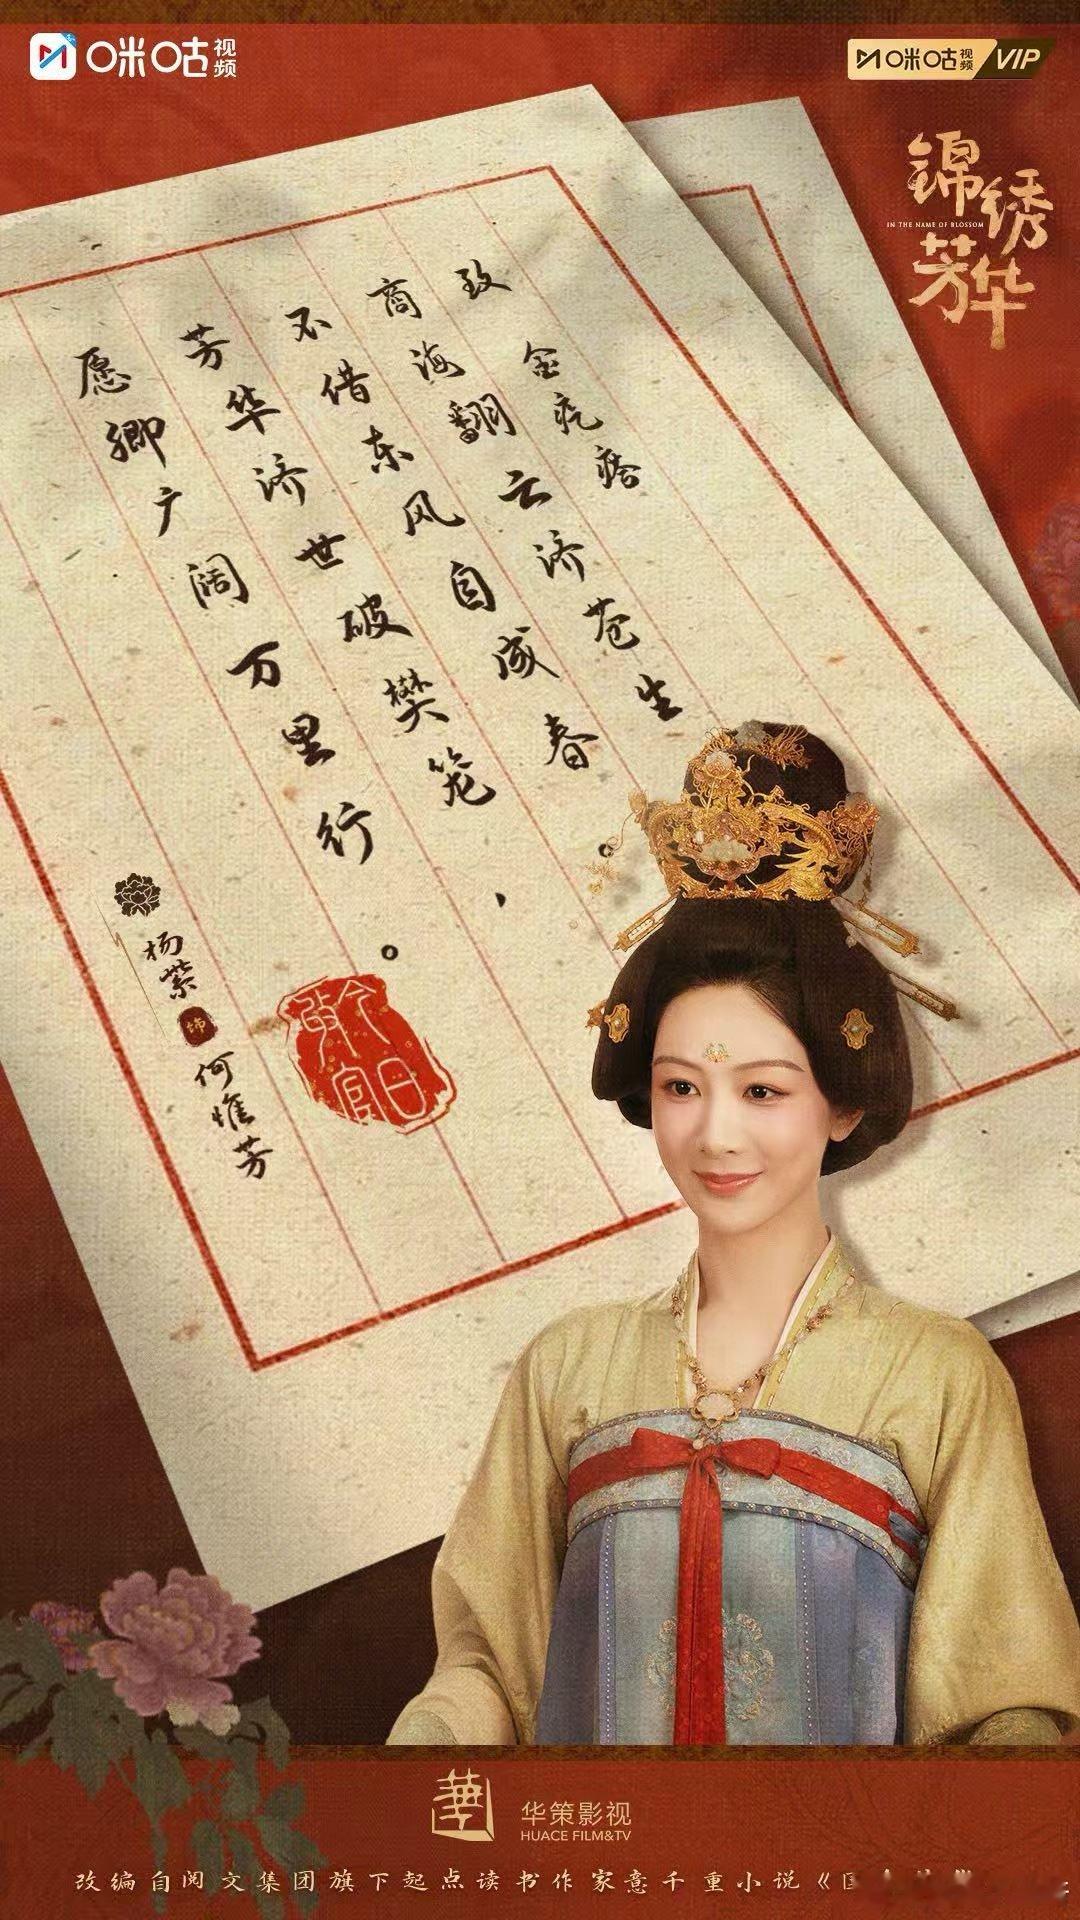 咪咕视频
咪咕视频 VIP
锦绣芳华
IN THE NAME OF BLOSSOM
致 金疙瘩
商海翻云济苍生
不借东风自成春。
芳华济世破樊笼，
愿卿广阔万里行。
杨紫 饰 何惟芳
今日
華
华策影视
HUACE FILM&TV
改编自阅文集团旗下起点读书作家意千重小说《国